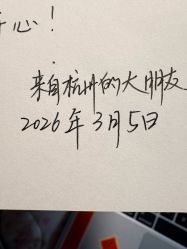 开心！
来自杭州的大朋友
2026年3月5日